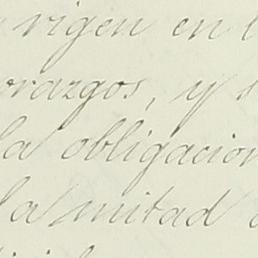 rigen en l
orazgos, y s
la obligacion
la mitad d